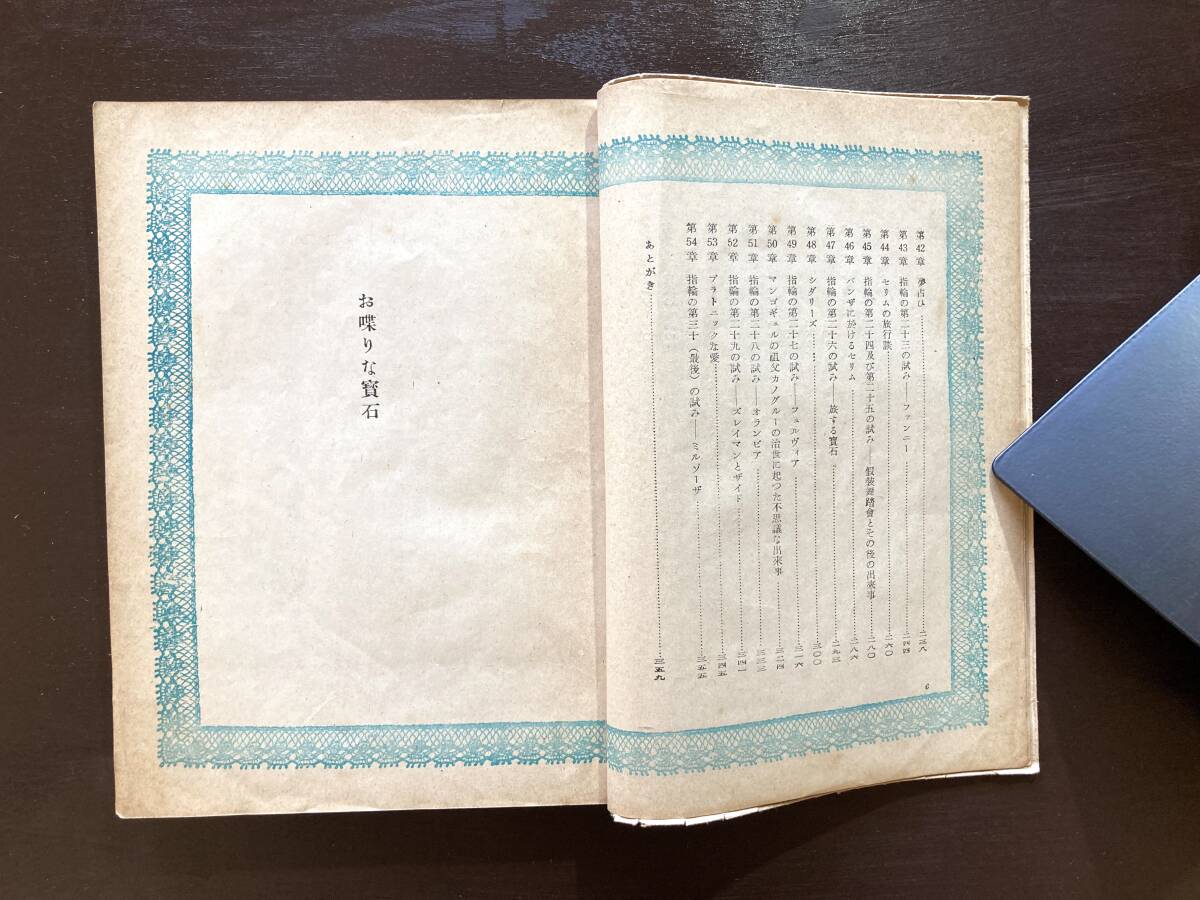 第42章 夢占ひ……二三八
第43章 指輪の第二十三の試み――ファンニー……二四四
第44章 セリムの旅行談……二六〇
第45章 指輪の第二十四及び第二十五の試み――假裝舞踏會とその後の出來事……二八〇
第46章 バンザに於けるセリム……二八六
第47章 指輪の第二十六の試み――旅する寶石……二九三
第48章 シダリーズ……三〇〇
第49章 指輪の第二十七の試み――フュルヴィア……三一六
第50章 マンゴギュルの祖父カノグルーの治世に起つた不思議な出來事……三二四
第51章 指輪の第二十八の試み――オランピア……三三三
第52章 指輪の第二十九の試み――ズレイマンとザイド……三四一
第53章 プラトニックな愛……三四五
第54章 指輪の第三十（最後）の試み――ミルゾーザ……三五五
あとがき……三五九
6
お喋りな寶石